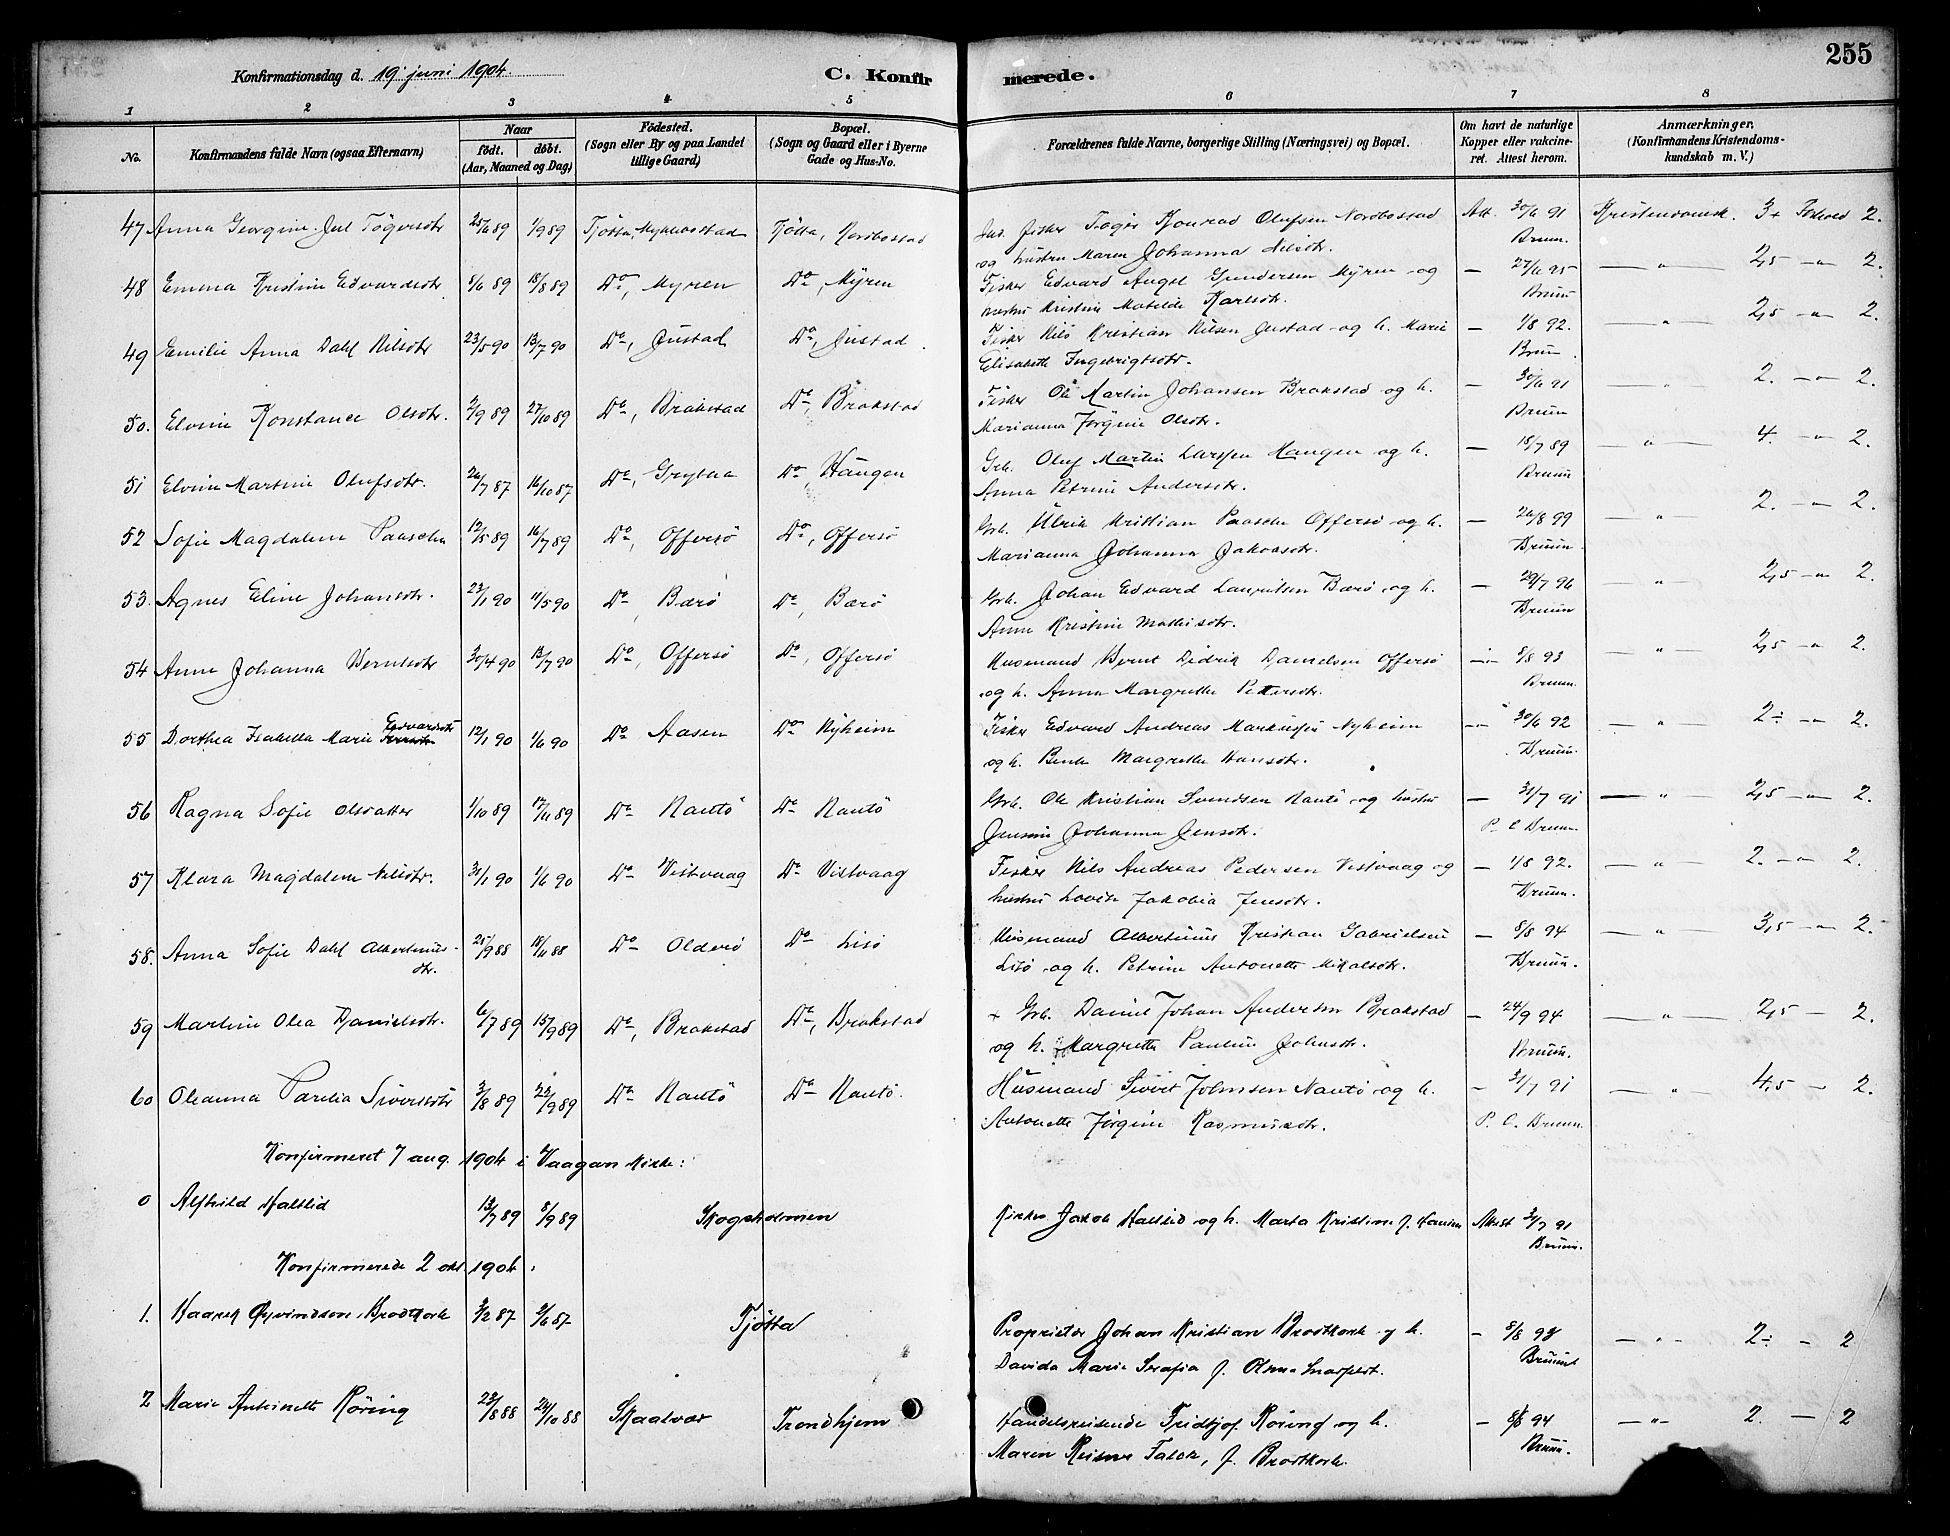 255
Konfirmationsdag d. 19 juni 1904.
C. Konfirmerede.
1 2 3 4 5 6 7 8
No.
Konfirmandens fulde Navn (ogsaa Efternavn)
Naar
født. døbt.
(Aar, Maaned og Dag)
Fødested.
(Sogn eller By og paa Landet
tillige Gaard)
Bopæl.
(Sogn og Gaard eller i Byerne
Gade og Hus-No.
Forældrenes fulde Navne, borgerlige Stilling (Næringsvei) og Bopæl.
Om havt de naturlige
Kopper eller vakcine-
ret. Attest herom.
Anmærkninger.
(Konfirmandens Kristendoms-
kundskab m. V.)
47 Anna Georgine Jul Tøgersdtr 25/6 89 1/9 89 Tjøtta, Myklebostad Tjøtta, Nordbostad Fisker Tøger Konrad Olufsen Nordbostad Att. 30/6 91 Kristendomsk. 3+ Forhold 2.
og hustru Maren Johanna Nilsdtr. Bruun.
48 Emma Kristine Edvardsdtr 8/6 89 18/8 89 Do, Myren Do, Myren Fisker Edvard Angel Gundersen Myren og — 27/6 95 — " — 2,5 — " — 2.
hustru Kristine Matilde Karlsdtr. Bruun
49 Emilie Anna Dahl Nilsdtr 23/5 90 13/7 90 Do, Justad Do, Justad. Fisker Nils Kristian Nilsen Justad og h. Marie — 1/8 92. — " — 2,5 — " — 2.
Elisabeth Ingebrigtsdtr. Bruun.
50. Elvine Konstance Olsdtr. 2/9 89 27/10 89 Do, Brakstad Do, Brakstad Fisker Ole Martin Johansen Brakstad og h. — 30/6 91 — " — 2. — " — 2.
Marianna Jørgine Olsdtr. Bruun
51 Elvine Martine Olufsdtr. 26/7 87 16/10 87 Do, Grytaa Do, Haugen Grb. Oluf Martin Larssen Haugen og h. — 18/7 89 — " — 4. — " — 2.
Anna Petrine Andersdtr. Bruun
52 Sofie Magdalene Paasche 12/5 89 16/7 89 Do, Offersø Do, Offersø Grb. Ulrik Kristian Paasche Offersø og h. — 26/8 99 — " — 2. — " — 2.
Marianna Johanna Jakobsdtr. Bruun.
53. Agnes Eline Johansdtr. 23/1 90 11/5 90 Do, Bærø Do, Bærø Grb. Johan Edvard Lauritsen Bærø og h. — 29/7 96 — " — 2,5 — " — 2.
Anne Kristine Mathisdtr. Bruun
54 Anne Johanna Berntsdtr 30/4 90 13/7 90 Do, Offersø Do, Offersø Husmand Bernt Didrik Danielsen Offersø — 8/8 93 — " — 2,5 — " — 2.
og h. Anna Margrethe Petersdtr. Bruun.
55 Dorthea Isabella Marie Edvardsdtr 12/1 90 1/6 90 Do Aasen Do Nyheim Fisker Edvard Andreas Markussen Nyheim — 30/6 92 — " — 2÷ — " — 2.
og h. Berit Margrethe Hansdtr. Bruun.
56 Ragna Sofie Olsdatter 1/10 89 17/11 89 Do Nautø Do Nautø Grb. Ole Kristian Svendsen Nautø og hustru — 31/7 91 — " — 2,5 — " — 2.
Jensine Johanna Jensdtr. P. C. Bruun.
57 Klara Magdalene Nilsdtr. 31/1 90 1/6 90 Do Vistvaag Do Vistvaag Fisker Nils Andreas Pedersen Vistvaag og — 1/8 92. — " — 2. — " — 2.
hustru Lovise Jakobia Jensdtr. Bruun.
58. Anna Sofie Dahl Albertinus- 25/9 88 18/11 88 Do Olderø Do Lisø Husmand Albertinus Kristian Gabrielsen — 8/8 94 — " — 3,5 — " — 2.
dtr. Lisø og h. Petrine Antonette Mikalsdtr. Bruun.
59 Martine Olea Danielsdtr. 6/7 89 15/9 89 Do, Brakstad Do, Brakstad + Grb. Daniel Johan Andersen Brakstad — 24/9 94 — " — 2,5 — 2.
og h. Margrethe Pauline Johnsdtr. Bruun.
60 Oleanna Parelia Siversdtr 3/8 89 22/9 89 Do Nautø Do Nautø. Husmand Sivert Johnsen Nautø og h. — 31/7 91 — " — 4,5 — 2.
Antonette Jørgine Rasmusdtr. P. C. Bruun
Konfirmeret 7 aug. 1904 i Vaagan Kirke:
0 Alfhild Haltlid 13/7 89 8/9 89 Skogsholmen Jakob Haltlid og h. Marta Kristine f. Hansen Attest 31/7 91
Bruun.
Konfirmerede 2 okt. 1904:
1. Haarek Øyvindson Brodtkorb 3/2 87 2/6 87 Tjøtta Proprietær Johan Kristian Brodtkorb og h. — 8/8 93 — " — 2÷ — 2
Davida Marie Serafia f. Bruun
2 Marie Antoinette Røring 28/8 88 24/10 88 Skaalvær Trondhjem Handelsreisende Fridtjof Røring og h. — 8/8 94 — " — 2. — 2
Maren Falck, f. Brodtkorb. Bruun.